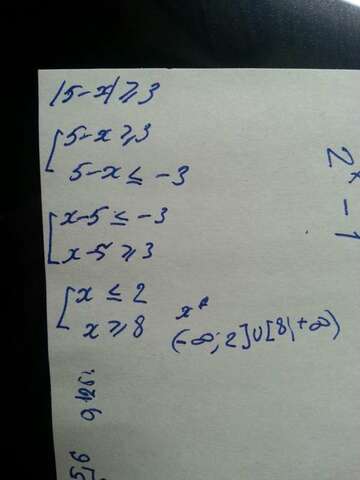 |5-x| ⩾ 3
[5-x ⩾ 3
5-x ≤ -3
[x-5 ≤ -3
x-5 ⩾ 3
[x ≤ 2
x ⩾ 8
x
(-∞; 2]∪[8; +∞)
2ˣ - 1